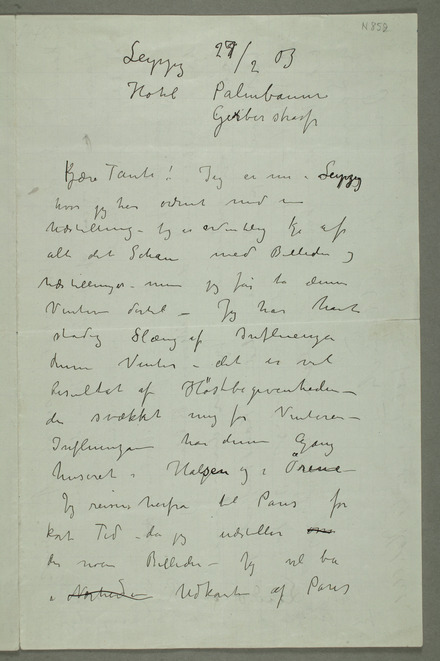 N 859
Leipzig 27/2 03
Hotel Palmbaum
Gerberstrasse
Kjære Tante! Jeg er nu i Leipzig
hvor jeg har ordnet med en
Udstilling – Jeg er ordentlig kje af
alt det Schau med Billeder og
Udstillinger – men jeg får ta denne
Vinteren dertil – Jeg har havt
stadig Slæng af Influenzaen
denne Vinter – det er vel
Resultat af Høstbegivenheden –
der svækket mig for Vinteren –
Influenzaen har denne Gang
huseret i Halsen og i Ørene
Jeg reiser herfra til Paris for
kort Tid – da jeg udstiller
der noen Billeder – Jeg vil bo
i Nærheden Udkanten af Paris